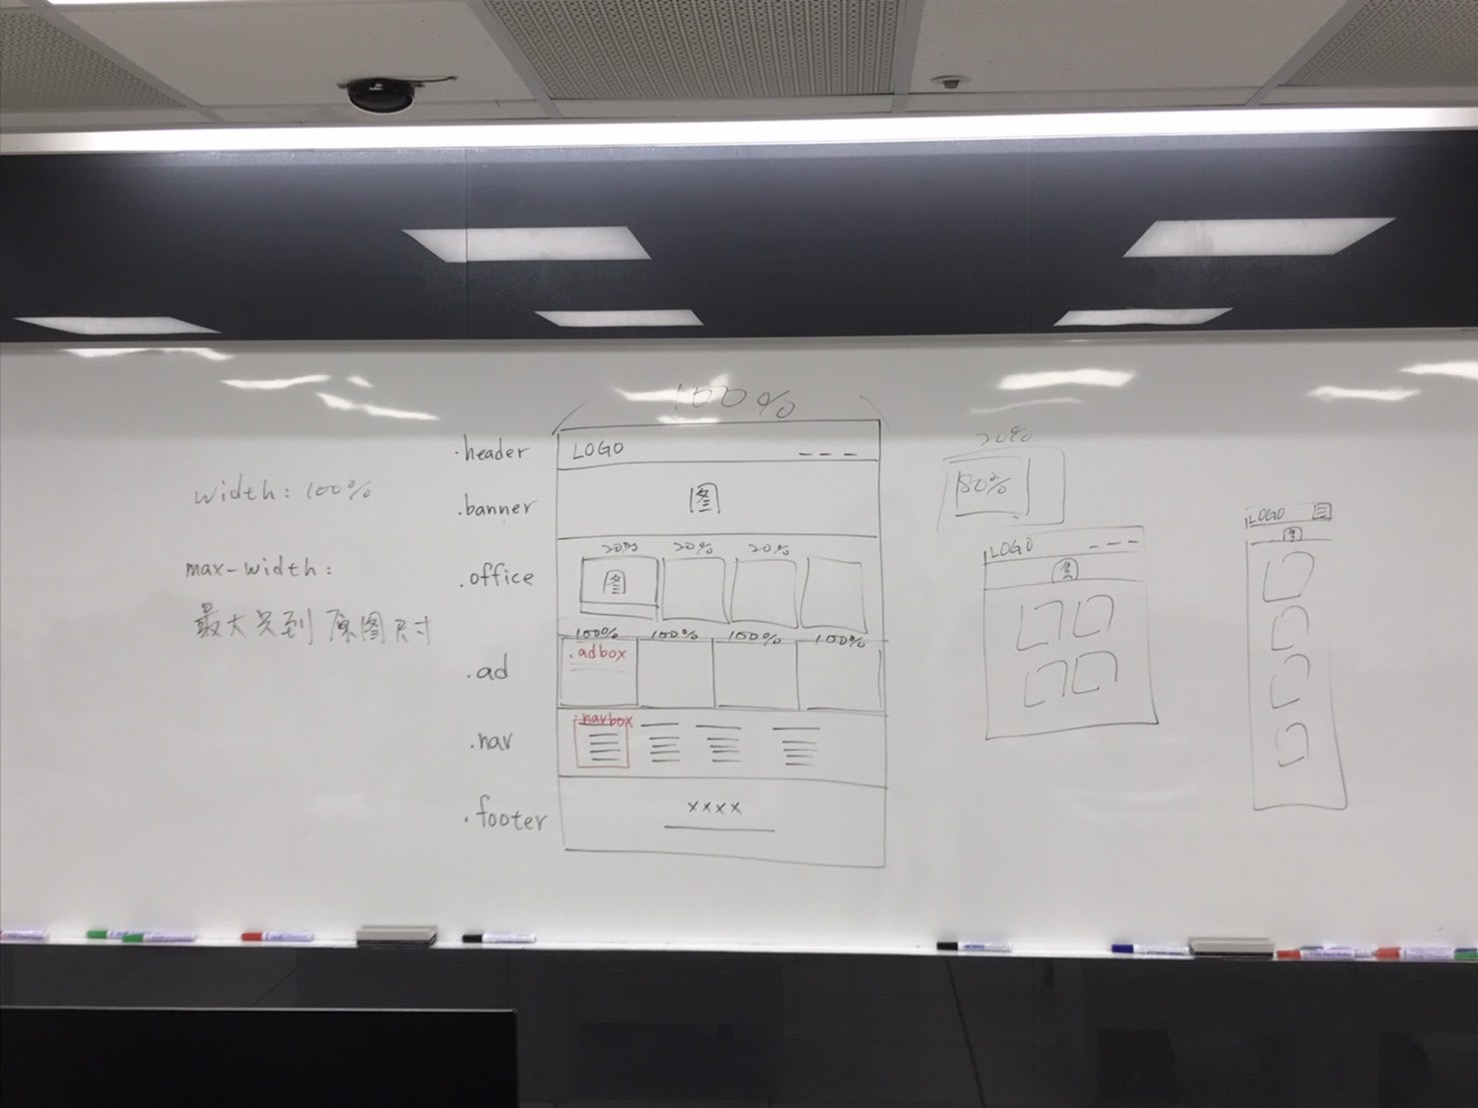 width: 100%
max-width:
最大只到原图尺寸
100%
.header
LOGO
.banner
图
.office
20% 20% 20%
图
100% 100% 100% 100%
.ad
.adbox
.nav
.navbox
.footer
xxxx
20%
80%
LOGO
图
LOGO
图